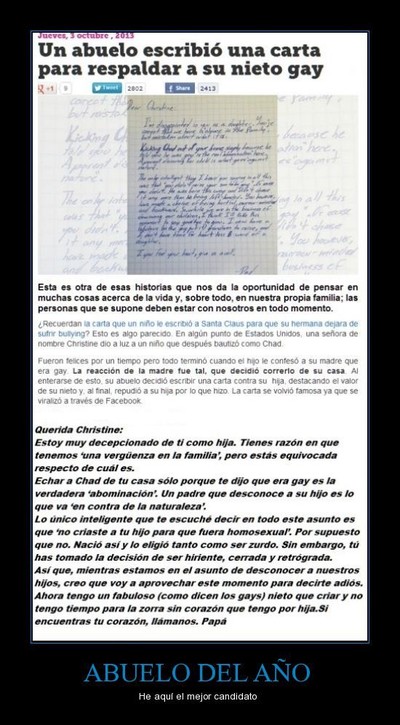 Jueves, 3 octubre , 2013
Un abuelo escribió una carta
para respaldar a su nieto gay
+1 9 Tweet 2802 Share 2413
Dear Christine:
I'm disappointed in you as a daughter.
Kicking Chad out of your home simply because he
Esta es otra de esas historias que nos da la oportunidad de pensar en
muchas cosas acerca de la vida y, sobre todo, en nuestra propia familia; las
personas que se supone deben estar con nosotros en todo momento.
¿Recuerdan la carta que un niño le escribió a Santa Claus para que su hermana dejara de
sufrir bullying? Esto es algo parecido. En algún punto de Estados Unidos, una señora de
nombre Christine dio a luz a un niño que después bautizó como Chad.
Fueron felices por un tiempo pero todo terminó cuando el hijo le confesó a su madre que
era gay. La reacción de la madre fue tal, que decidió correrlo de su casa. Al
enterarse de esto, su abuelo decidió escribir una carta contra su hija, destacando el valor
de su nieto y, al final, repudió a su hija por lo que hizo. La carta se volvió famosa ya que se
viralizó a través de Facebook.
Querida Christine:
Estoy muy decepcionado de ti como hija. Tienes razón en que
tenemos ‘una vergüenza en la familia’, pero estás equivocada
respecto de cuál es.
Echar a Chad de tu casa sólo porque te dijo que era gay es la
verdadera ‘abominación’. Un padre que desconoce a su hijo es lo
que va ‘en contra de la naturaleza’.
Lo único inteligente que te escuché decir en todo este asunto es
que ‘no criaste a tu hijo para que fuera homosexual’. Por supuesto
que no. Nació así y lo eligió tanto como ser zurdo. Sin embargo, tú
has tomado la decisión de ser hiriente, cerrada y retrógrada.
Así que, mientras estamos en el asunto de desconocer a nuestros
hijos, creo que voy a aprovechar este momento para decirte adiós.
Ahora tengo un fabuloso (como dicen los gays) nieto que criar y no
tengo tiempo para la zorra sin corazón que tengo por hija.Si
encuentras tu corazón, llámanos. Papá
ABUELO DEL AÑO
He aquí el mejor candidato